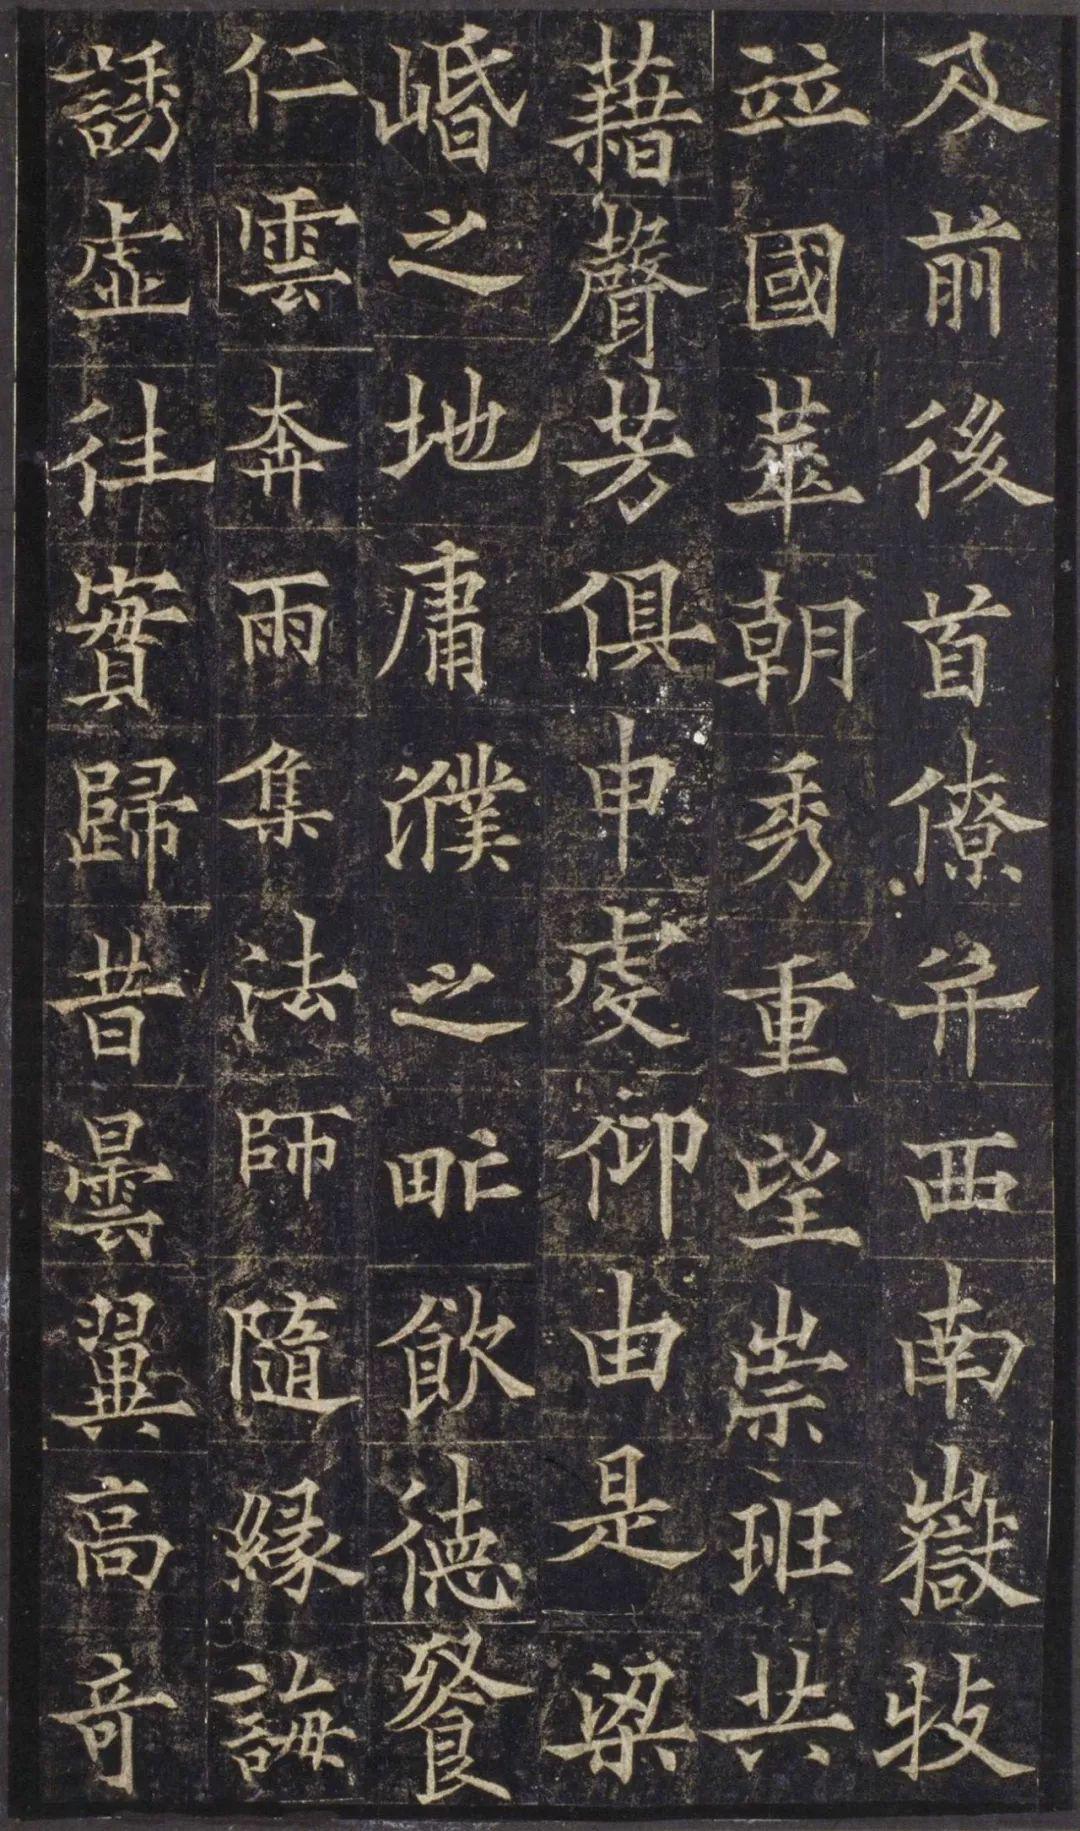 及前後首僚并西南嶽牧
竝國華朝秀重望崇班共
藉聲芳俱申虔仰由是梁
㟭之地庸濮之甿飲德餐
仁雲奔雨集法師隨緣誨
誘虛往實歸昔曇翼高奇